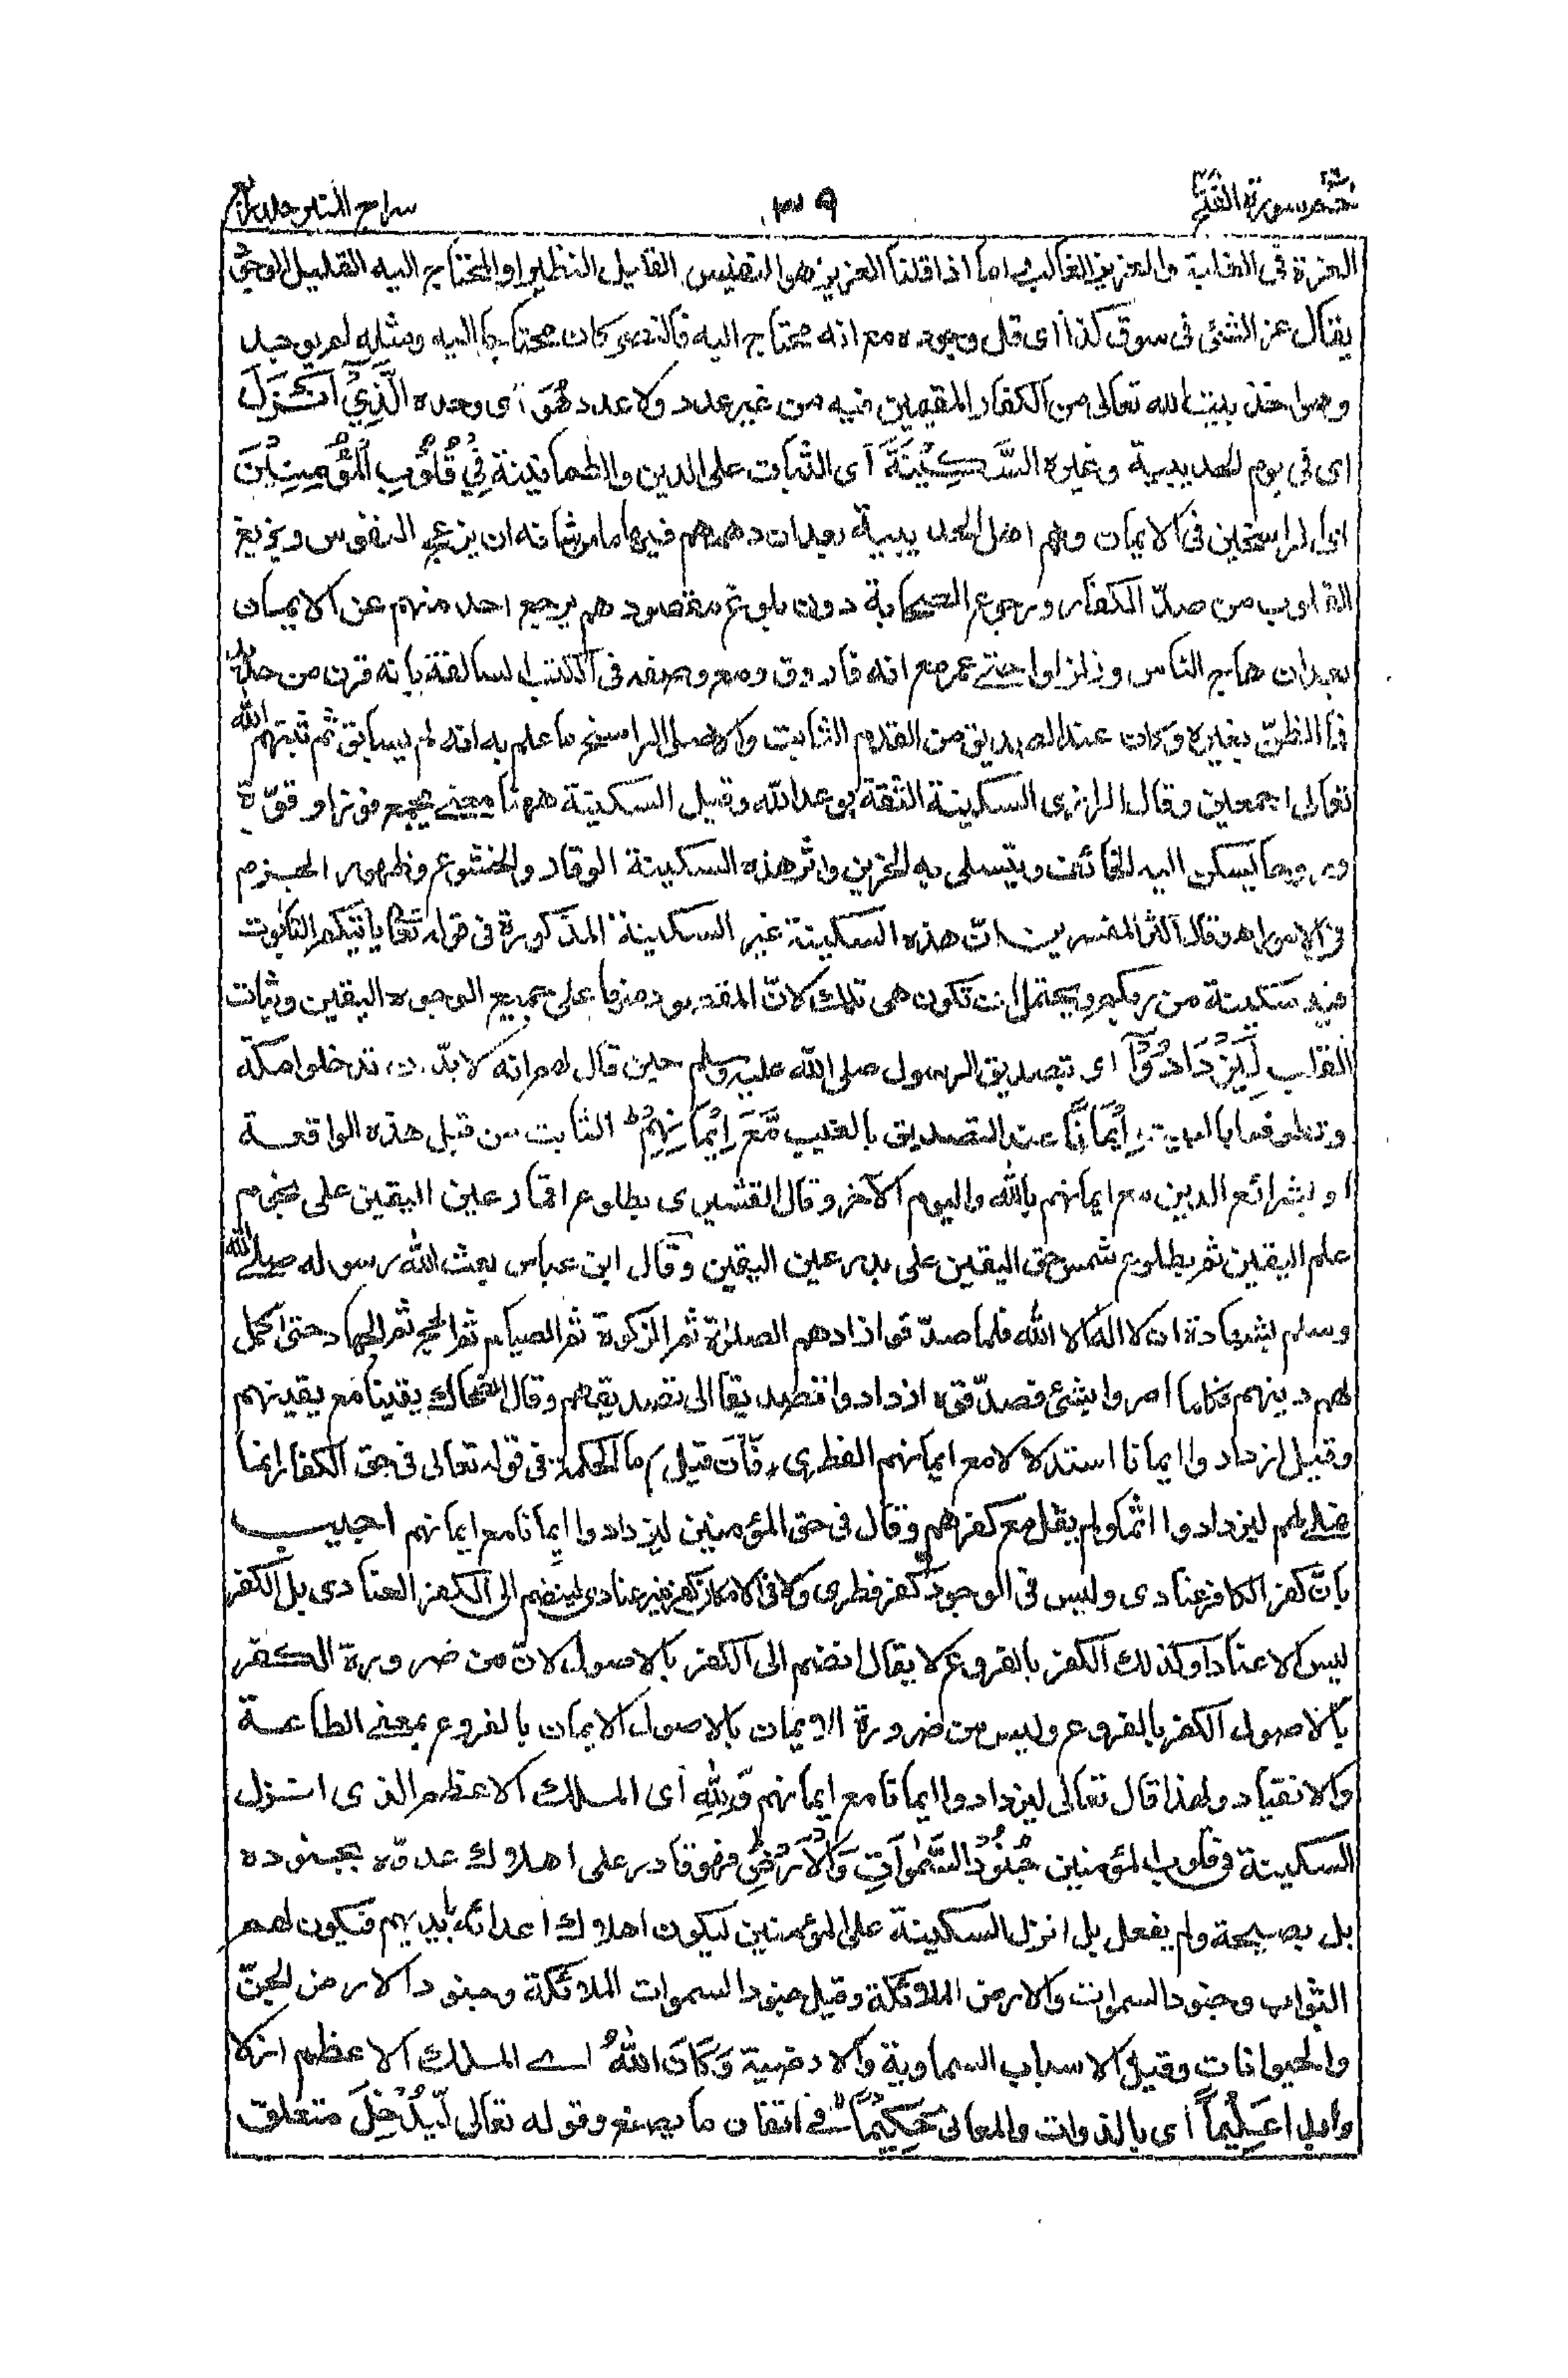 سورة الفتح
٣٠٩
سراج المنير جلد رابع
العزة فى الغلبة والعزيز الغالب واما اذا قلنا العزيز هو النفيس القليل النظير او المحتاج اليه القليل الوجود
يقال عز الشئ فى سوق كذا اى قل وجوده مع انه محتاج اليه فالنصر كان محتاجا اليه ومثله لم يوجد
وهو اخذ بيت الله تعالى من الكفار المقيمين فيه من غير عدد ولا عدد هُوَ اى وحده الَّذِىْ اَنْزَلَ
اى فى يوم الحديبية وغيره السَّكِيْنَةَ اى الثبات على الدين والطمانينة فِىْ قُلُوْبِ الْمُؤْمِنِيْنَ
اى الراسخين فى الايمان وهم اهل الحديبية بعد ان دهمهم فيها ما من شانه ان يزعج النفوس ويزيغ
القلوب من صدّ الكفار ورجوع الصحابة دون بلوغ مقصودهم يرجع احد منهم عن الايمان
بعد ان هاج الناس وزلزلوا حتى عمر مع انه فاروق ومع وصفه فى الكتب السالفة بانه قرن من حديد
فما الظنّ بغيره وكان عند الصديق من القدم الثابت والاصل الراسخ ما علم به انه لم يسابق ثم ثبتهم الله
تعالى اجمعين وقال الرازى السكينة الثقة بوعد الله وقيل السكينة ههنا معنى يجمع فوزا و قوّة
وروحا يسكن اليه الخائف ويتسلى به الحزين واثر هذه السكينة الوقار والخشوع وظهور الحزم
فى الامور اهـ وقال اكثر المفسرين انّ هذه السكينة غير السكينة المذكورة فى قوله تعالى ياتيكم التابوت
فيه سكينة من ربكم ويحتمل ان تكون هى تلك لانّ المقصود منها على جميع الوجوه اليقين وثبات
القلب لِيَزْدَادُوْا اى بتصديق الرسول صلى الله عليه وسلم حين قال لهم انه لا بدّ ان تدخلوا مكة
وتطوفوا بالبيت اِيْمَانًا عند التصديق بالغيب مَّعَ اِيْمَانِهِمْ الثابت من قبل هذه الواقعة
او بشرائع الدين مع ايمانهم بالله واليوم الآخر وقال القشيرى بطلوع اقمار عين اليقين على نجوم
علم اليقين ثم بطلوع شمس حق اليقين على بدر عين اليقين وقال ابن عباس بعث الله رسوله صلى الله
وسلم بشهادة ان لا اله الا الله فلما صدّقوا زادهم الصلوٰة ثم الزكوٰة ثم الصيام ثم الحج ثم الجهاد حتى اكمل
لهم دينهم فكلما امروا بشئ فصدّقوه ازدادوا تصديقا الى تصديقهم وقال الضحاك يقينا مع يقينهم
وقيل ازدادوا ايمانا استدلالا مع ايمانهم الفطرى فان قيل ما الحكمة فى قوله تعالى فى حق الكفار انما
نملى لهم ليزدادوا اثما ولم يقل مع كفرهم وقال فى حق المؤمنين ليزدادوا ايمانا مع ايمانهم اجيب
بانّ كفر الكافر عنادى وليس فى الوجود كفر فطرى ولا فى الامكان كفر غير عنادى لينضم الى الكفر العنادى بل الكفر
ليس الا عنادا وكذلك الكفر بالفروع لا يقال انضم الى الكفر بالاصول لانّ من ضرورة الكفر
بالاصول الكفر بالفروع وليس من ضرورة الايمان بالاصول الايمان بالفروع بمعنى الطاعة
والانقياد ولهذا قال تعالى ليزدادوا ايمانا مع ايمانهم وَلِلّٰهِ اى الملك الاعظم الذى انزل
السكينة فى قلوب المؤمنين جُنُوْدُ السَّمٰوَاتِ وَالْاَرْضِ فهو قادر على اهلاك عدوّه بجنوده
بل بصيحة ولم يفعل بل انزل السكينة على المؤمنين ليكون اهلاك اعدائه بايديهم فيكون لهم
الثواب وجنود السموات والارض الملائكة وقيل جنود السموات الملائكة وجنود الارض الجنّ
والحيوانات وقيل الاسباب السماوية والارضية وَكَانَ اللّٰهُ اى الملك الاعظم ازلا
وابدا عَلِيْمًا اى بالذوات والمعانى حَكِيْمًا فى اتقان ما يصنع وقوله تعالى لِّيُدْخِلَ متعلق